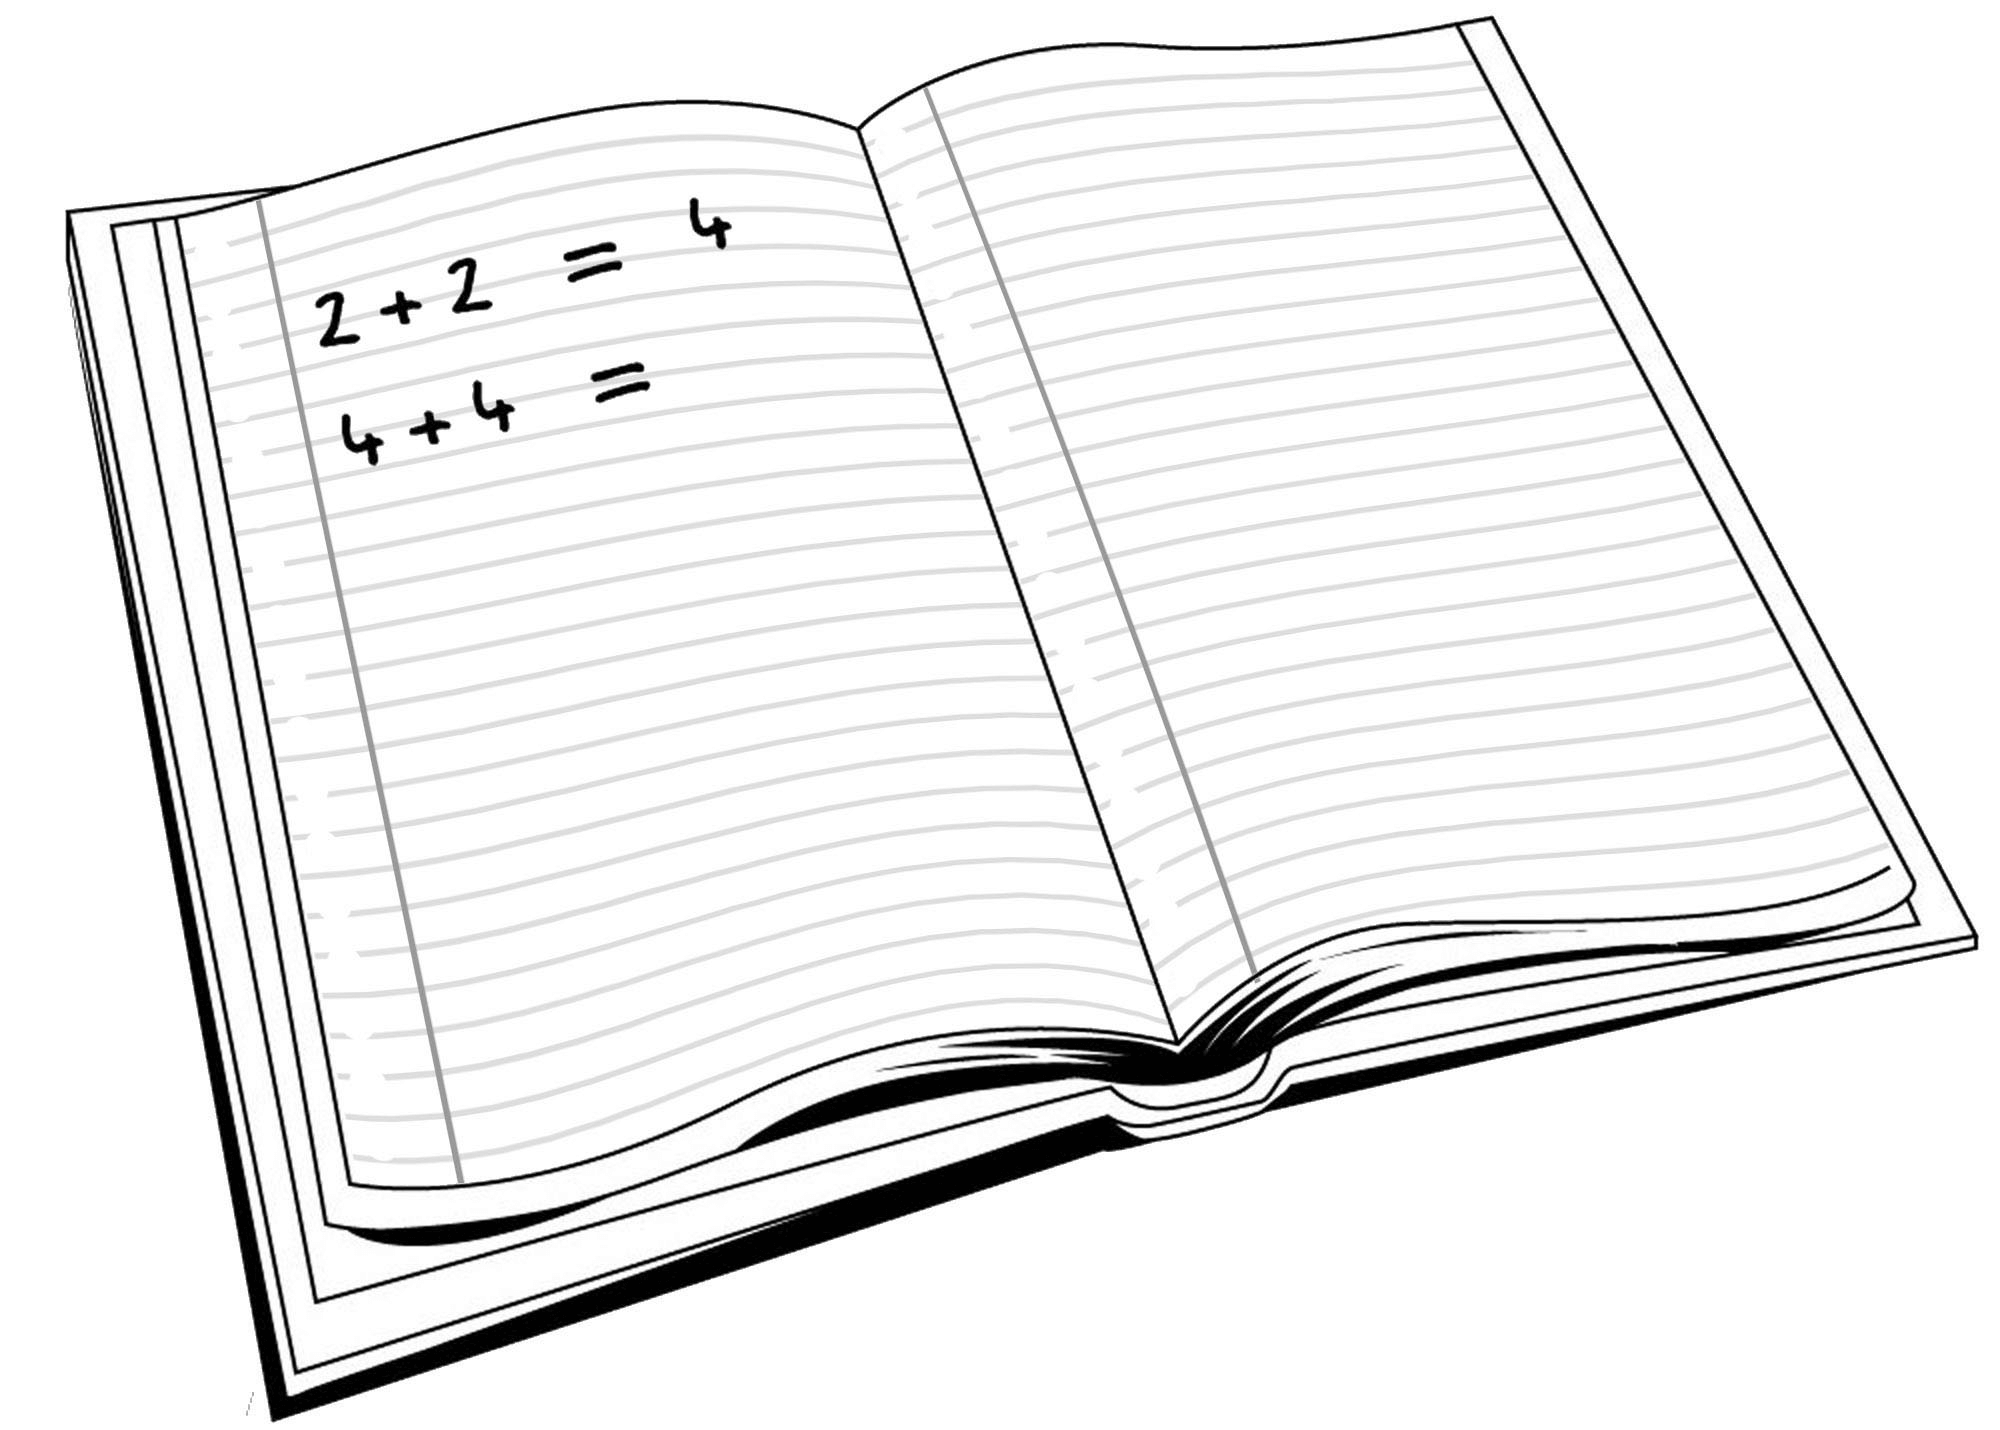 2 + 2 = 4
4 + 4 =